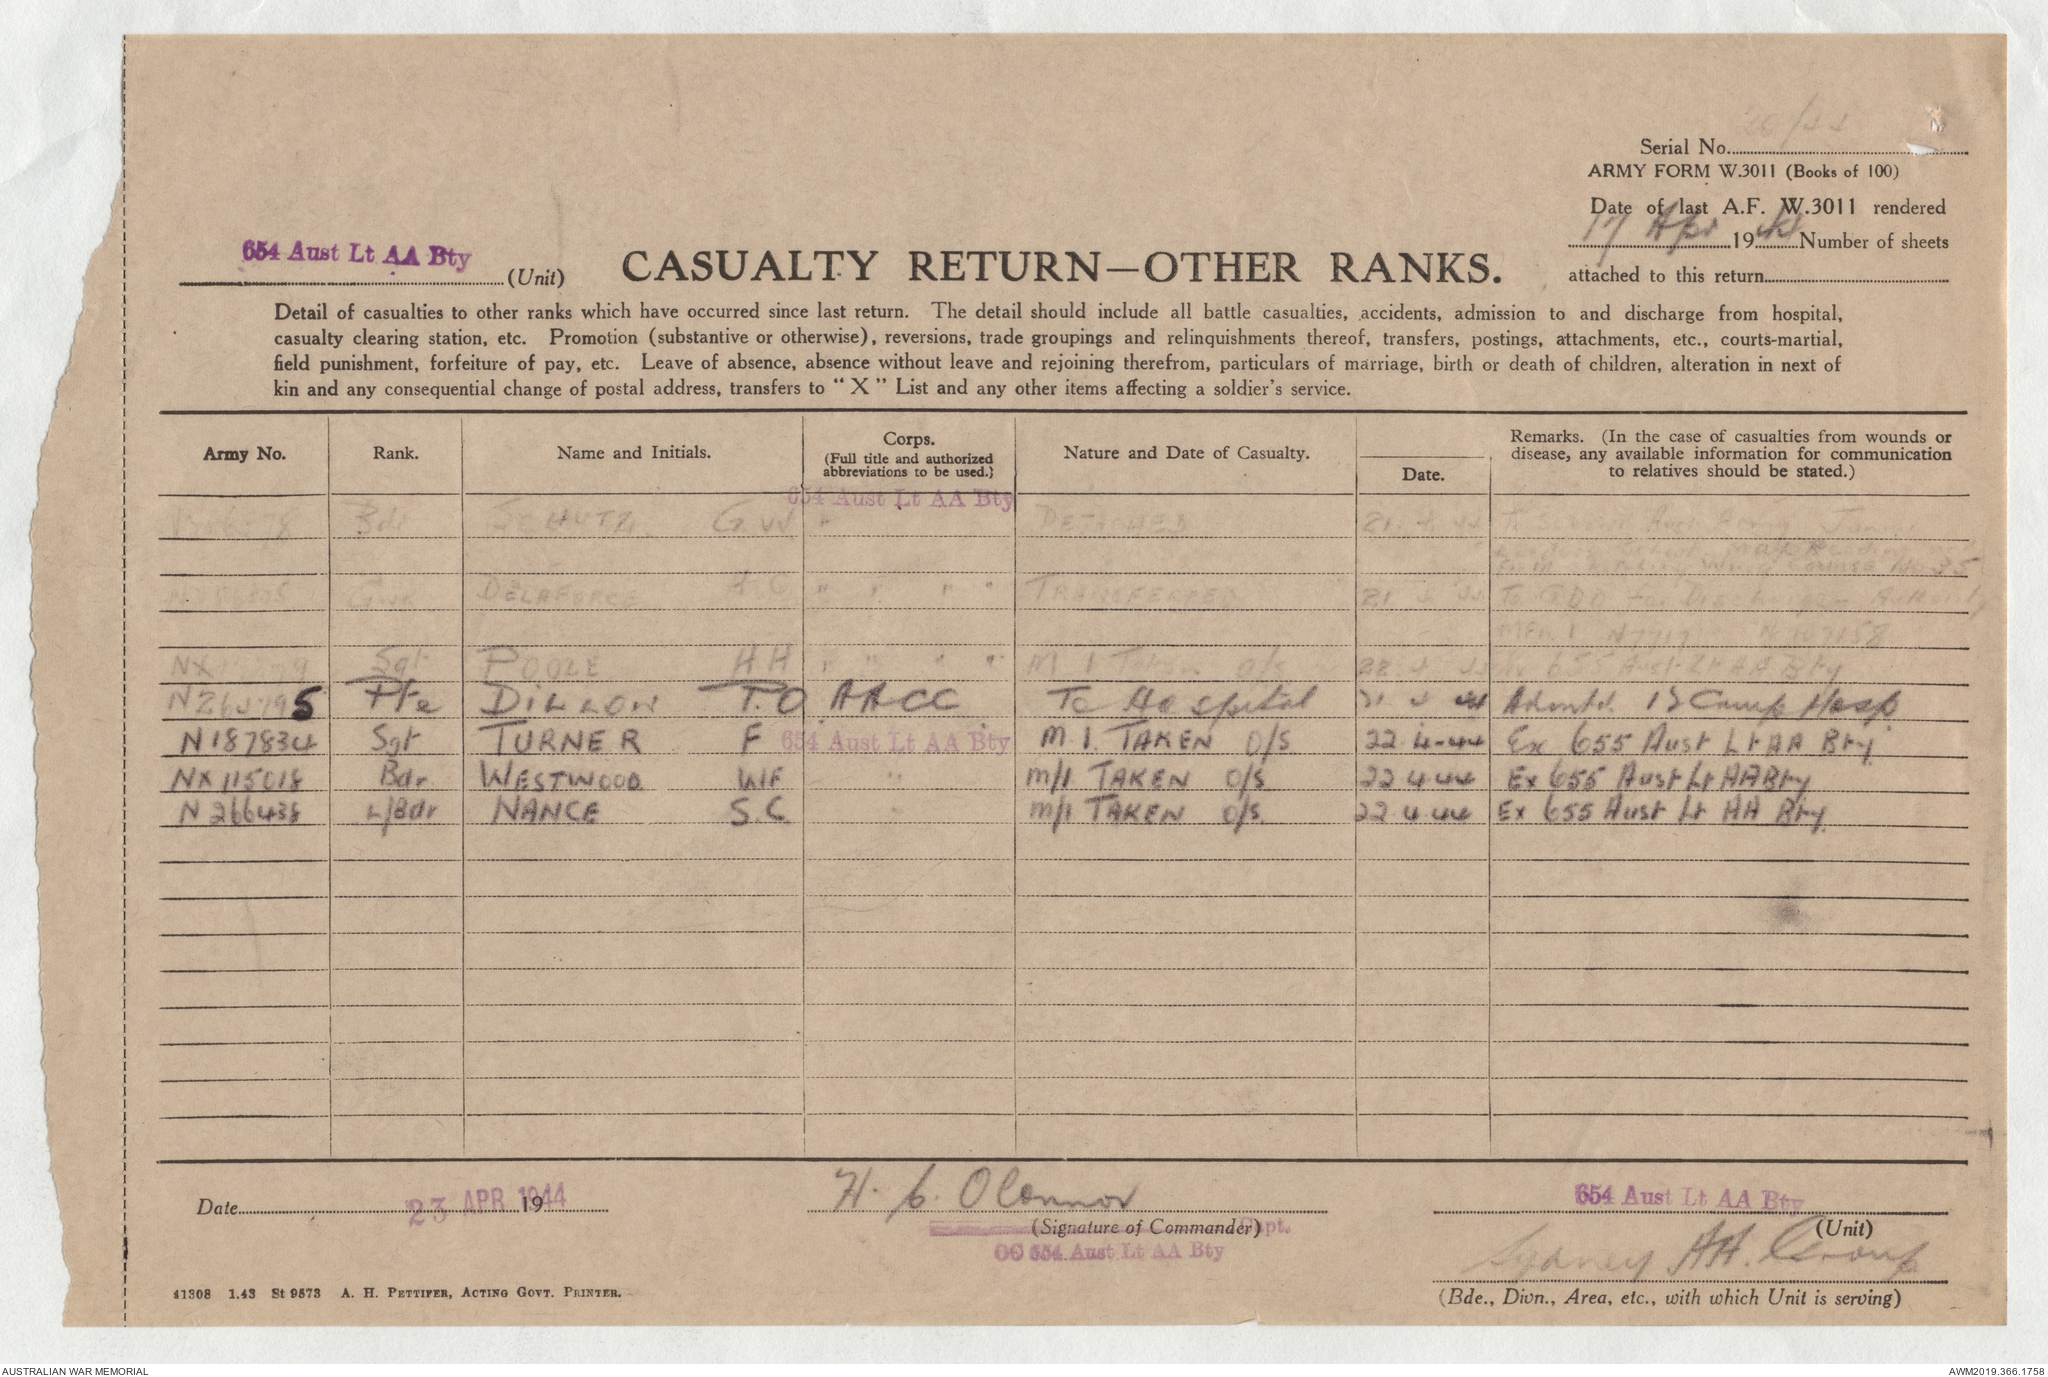 Serial No.
ARMY FORM W.3011 (Books of 100)
Date of last A.F. W.3011 rendered
17 Apr 1944 Number of sheets
attached to this return
654 Aust Lt AA Bty (Unit)
CASUALTY RETURN—OTHER RANKS.
Detail of casualties to other ranks which have occurred since last return. The detail should include all battle casualties, accidents, admission to and discharge from hospital,
casualty clearing station, etc. Promotion (substantive or otherwise), reversions, trade groupings and relinquishments thereof, transfers, postings, attachments, etc., courts-martial,
field punishment, forfeiture of pay, etc. Leave of absence, absence without leave and rejoining therefrom, particulars of marriage, birth or death of children, alteration in next of
kin and any consequential change of postal address, transfers to "X" List and any other items affecting a soldier's service.
Army No. Rank. Name and Initials. Corps. (Full title and authorized abbreviations to be used.) Nature and Date of Casualty. Date. Remarks. (In the case of casualties from wounds or disease, any available information for communication to relatives should be stated.)
654 Aust Lt AA Bty
Bdr SCHUTZ G.W " DETACHED 21.4.44
Gnr DELAFORCE A.C " " " " TRANSFERRED 21 4 44 To GDD for Discharge Authority
Sgt POOLE H H " " " " M I Taken O/S 22.4.44 Ex 655 Aust Lt AA Bty
Pte DILLON T.O AACC To Hospital 21 4 44 Admtd. 13 Camp Hosp
N187834 Sgt TURNER F 654 Aust Lt AA Bty M I. TAKEN O/S 22.4.44 Ex 655 Aust Lt AA Bty
NX115018 Bdr WESTWOOD W F " M/I TAKEN O/S 22 4 44 Ex 655 Aust Lt AA Bty
N266438 L/Bdr NANCE S.C. " M/I TAKEN O/S 22.4.44 Ex 655 Aust Lt AA Bty
Date 23 APR 1944 19
H. C. O'Connor
(Signature of Commander) Capt.
OC 654 Aust Lt AA Bty
654 Aust Lt AA Bty
(Unit)
Sydney AA. Group
(Bde., Divn., Area, etc., with which Unit is serving)
41308 1.43 St 9573 A. H. PETTIFER, ACTING GOVT. PRINTER.
AUSTRALIAN WAR MEMORIAL
AWM2019.366.1758